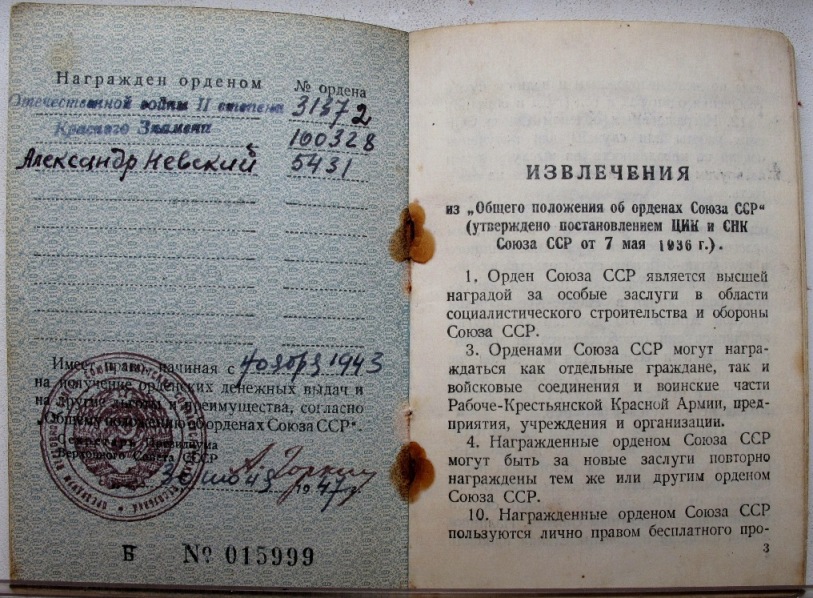 Награжден орденом
№ ордена
Отечественной войны II степени 31372
Красного Знамени 100328
Александр Невский 5431
Имеет право, начиная с ноября 1943
на получение орденских денежных выдач и
на другие льготы и преимущества, согласно
„Общему положению об орденах Союза ССР“.
Секретарь Президиума
Верховного Совета СССР
А. Горкин
30 1947 г.
Б № 015999
ИЗВЛЕЧЕНИЯ
из „Общего положения об орденах Союза ССР“
(утверждено постановлением ЦИК и СНК
Союза ССР от 7 мая 1936 г.).
1. Орден Союза ССР является высшей
наградой за особые заслуги в области
социалистического строительства и обороны
Союза ССР.
3. Орденами Союза ССР могут награ-
ждаться как отдельные граждане, так и
войсковые соединения и воинские части
Рабоче-Крестьянской Красной Армии, пред-
приятия, учреждения и организации.
4. Награжденные орденом Союза ССР
могут быть за новые заслуги повторно
награждены тем же или другим орденом
Союза ССР.
10. Награжденные орденом Союза ССР
пользуются лично правом бесплатного про-
3